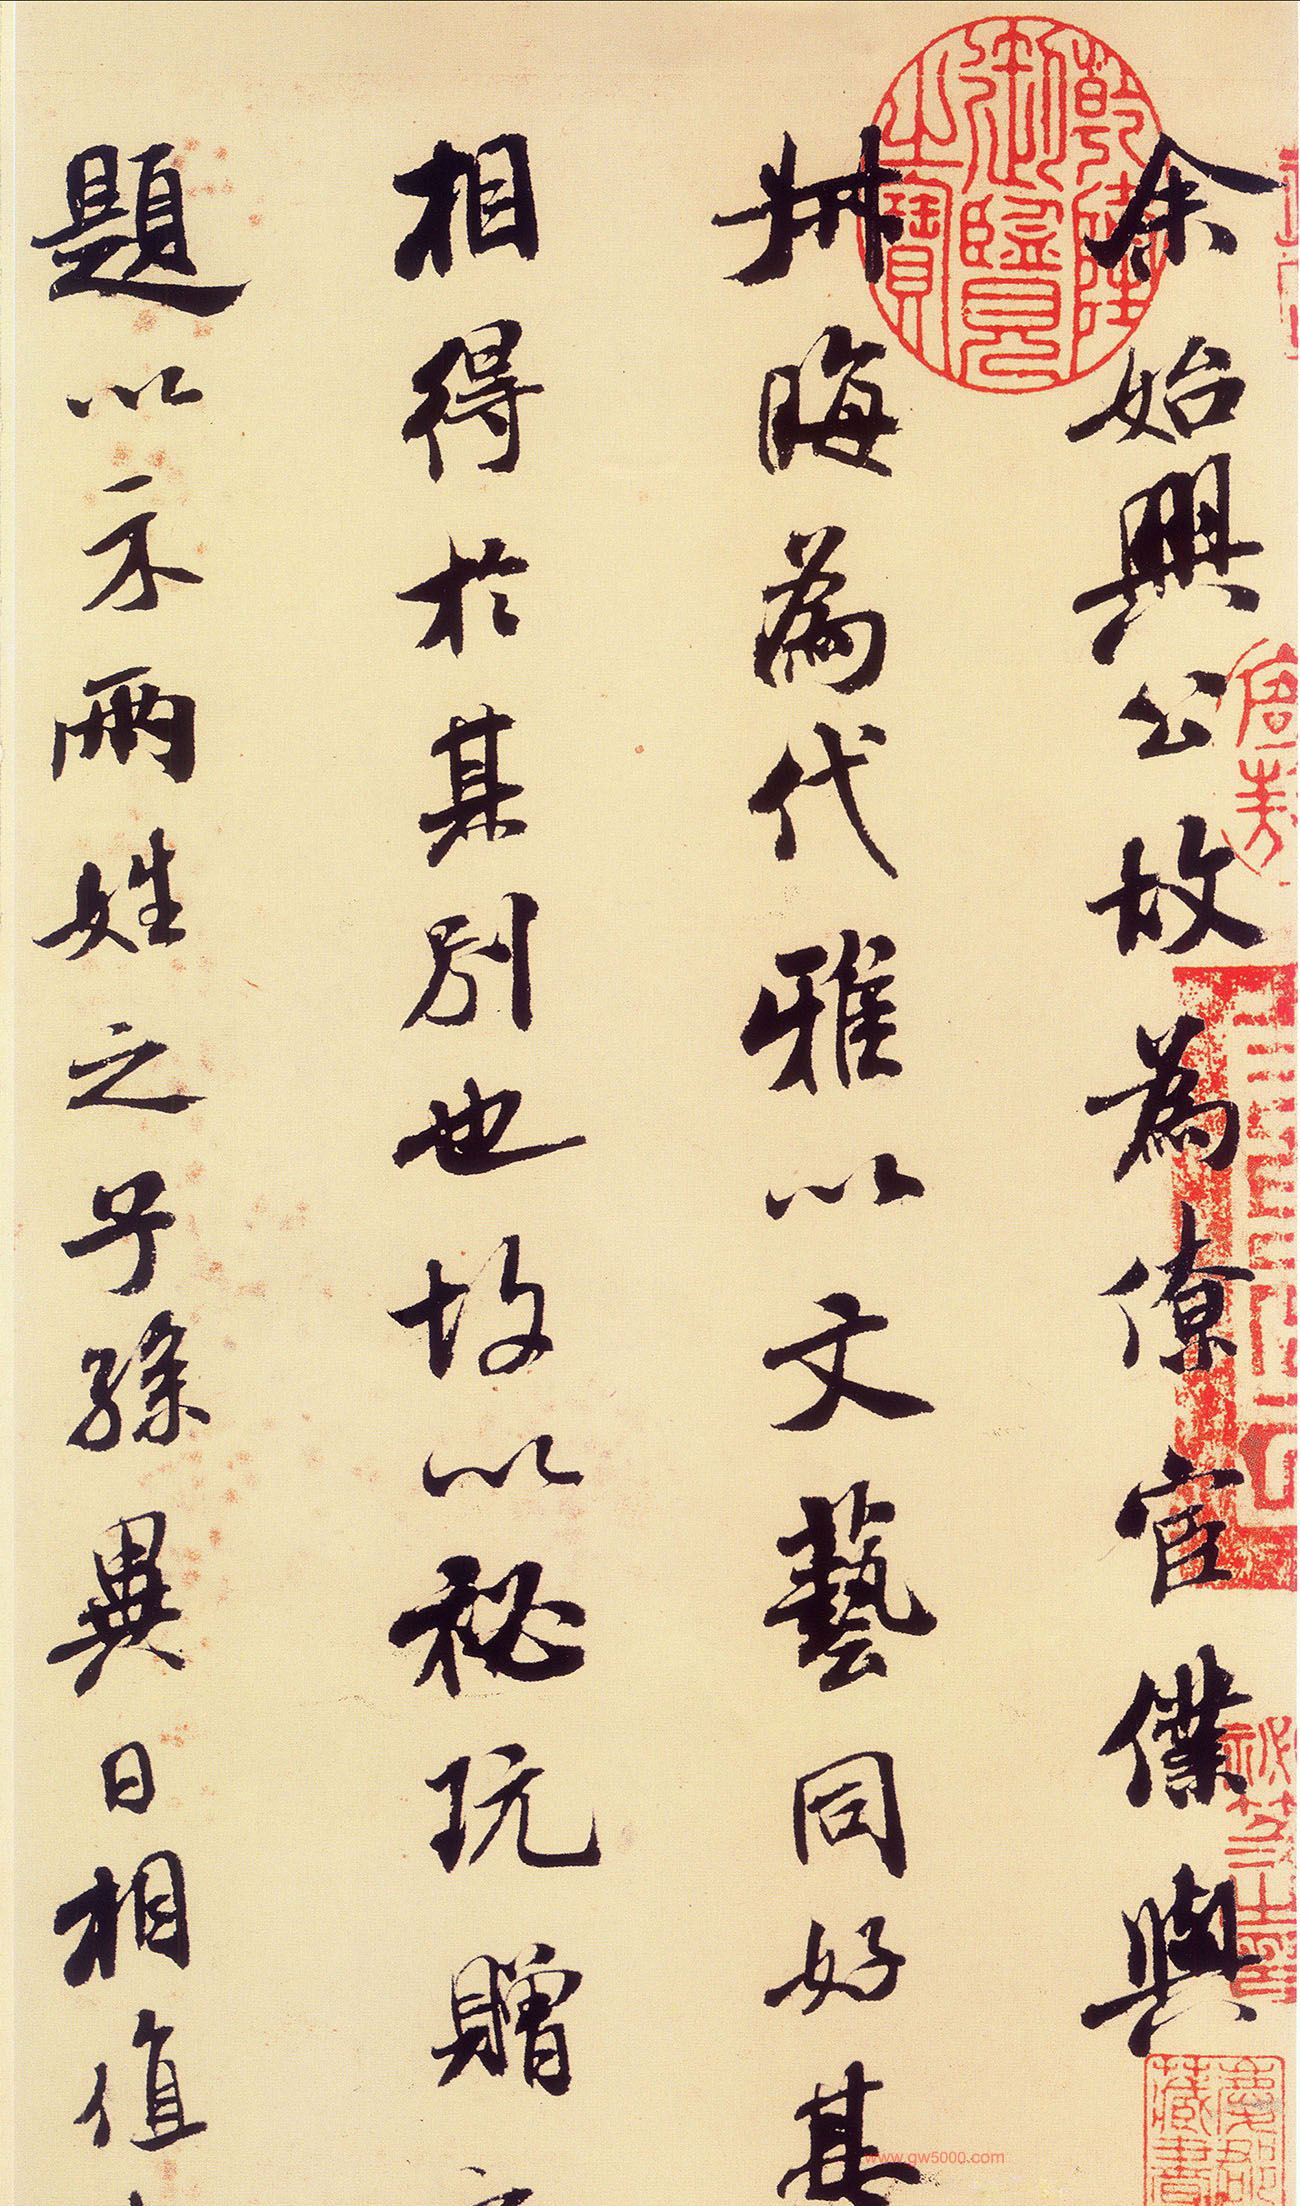 余始興公故為僚宦僕與
叔晦為代雅以文藝同好甚
相得於其別也故以秘玩贈之
題以示兩姓之子孫異日相值
乾隆御覽之寶
www.gw5000.com